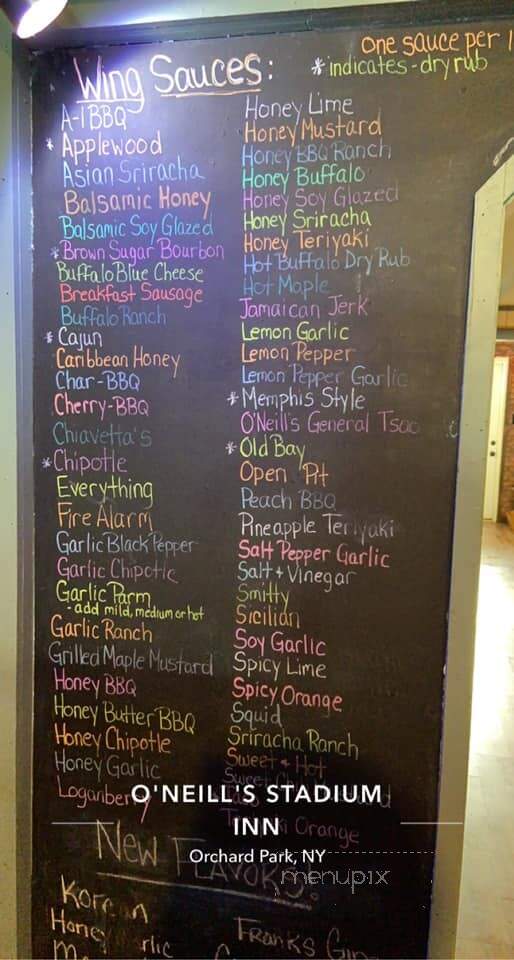 one sauce per
Wing Sauces:
* indicates - dry rub
A-1 BBQ
* Applewood
Asian Sriracha
Balsamic Honey
Balsamic Soy Glazed
* Brown Sugar Bourbon
Buffalo Blue Cheese
Breakfast Sausage
Buffalo Ranch
* Cajun
Caribbean Honey
Char-BBQ
Cherry-BBQ
Chiavetta's
* Chipotle
Everything
Fire Alarm
Garlic Black Pepper
Garlic Chipotle
Garlic Parm
- add mild, medium or hot
Garlic Ranch
Grilled Maple Mustard
Honey BBQ
Honey Butter BBQ
Honey Chipotle
Honey Garlic
Loganberry
Honey Lime
Honey Mustard
Honey BBQ Ranch
Honey Buffalo
Honey Soy Glazed
Honey Sriracha
Honey Teriyaki
Hot Buffalo Dry Rub
Hot Maple
Jamaican Jerk
Lemon Garlic
Lemon Pepper
Lemon Pepper Garlic
* Memphis Style
O'Neill's General Tsao
* Old Bay
Open Pit
Peach BBQ
Pineapple Teriyaki
Salt Pepper Garlic
Salt + Vinegar
Smitty
Sicilian
Soy Garlic
Spicy Lime
Spicy Orange
Squid
Sriracha Ranch
Sweet + Hot
Sweet
Orange
O'NEILL'S STADIUM
INN
Orchard Park, NY
menupix
New Flavors!
Korean
Honey Garlic
Franks